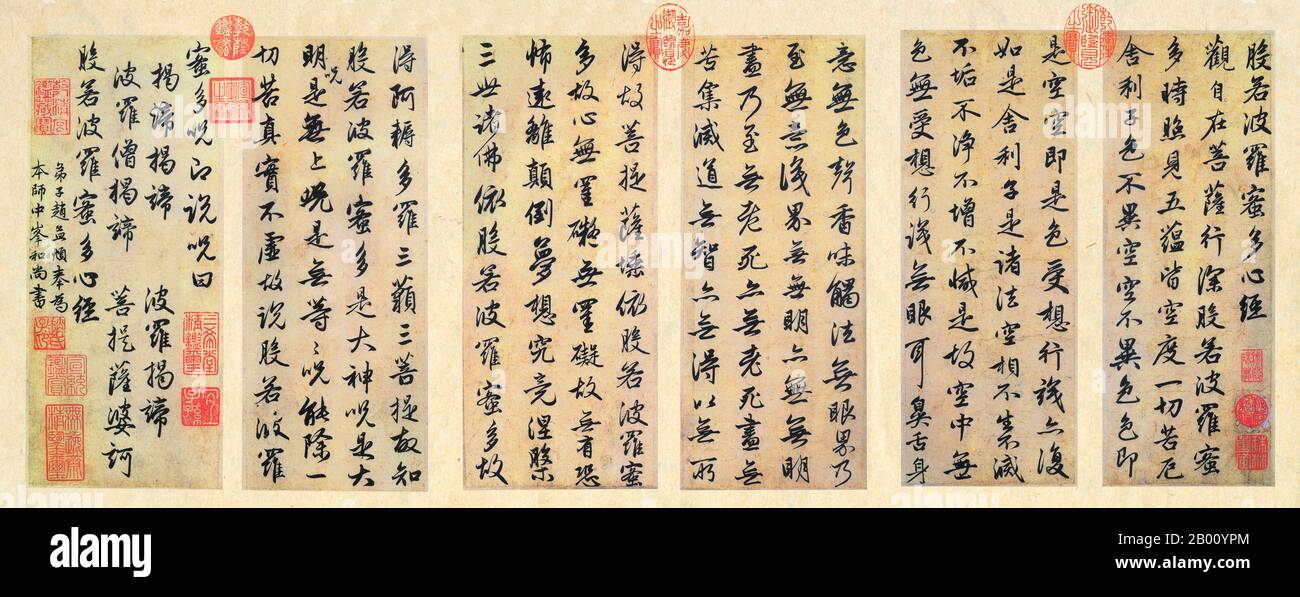 般若波羅蜜多心經
觀自在菩薩行深般若波羅蜜
多時照見五蘊皆空度一切苦厄
舍利子色不異空空不異色色即
是空空即是色受想行識亦復
如是舍利子是諸法空相不生不滅
不垢不淨不增不減是故空中無
色無受想行識無眼耳鼻舌身
意無色聲香味觸法無眼界乃
至無意識界無無明亦無無明
盡乃至無老死亦無老死盡無
苦集滅道無智亦無得以無所
得故菩提薩埵依般若波羅蜜
多故心無罣礙無罣礙故無有恐
怖遠離顛倒夢想究竟涅槃
三世諸佛依般若波羅蜜多故
得阿耨多羅三藐三菩提故知
般若波羅蜜多是大神咒是大
明咒是無上咒是無等〻咒能除一
切苦真實不虛故說般若波羅
蜜多咒即說咒曰
揭諦揭諦 波羅揭諦
波羅僧揭諦 菩提薩婆訶
般若波羅蜜多心經
弟子趙孟頫奉為
本師中峯和尚書
乾隆鑑賞
嘉慶御覽之寶
乾隆御覽之寶
三希堂精鑑璽
宜子孫
alamy
Image ID: 2B00YPM
www.alamy.com